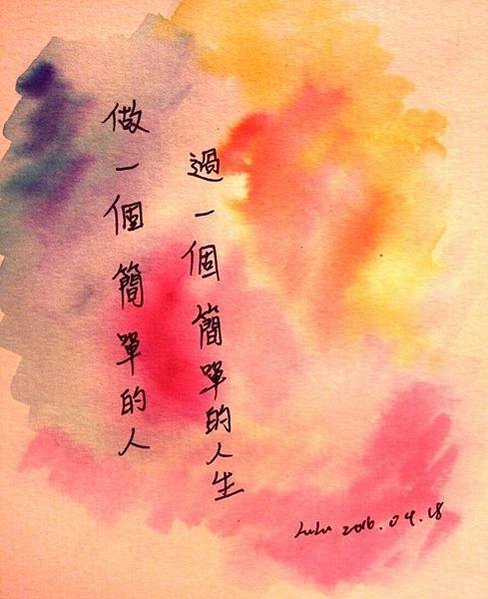 做一個簡單的人
過一個簡單的人生
LuLu 2016.04.18